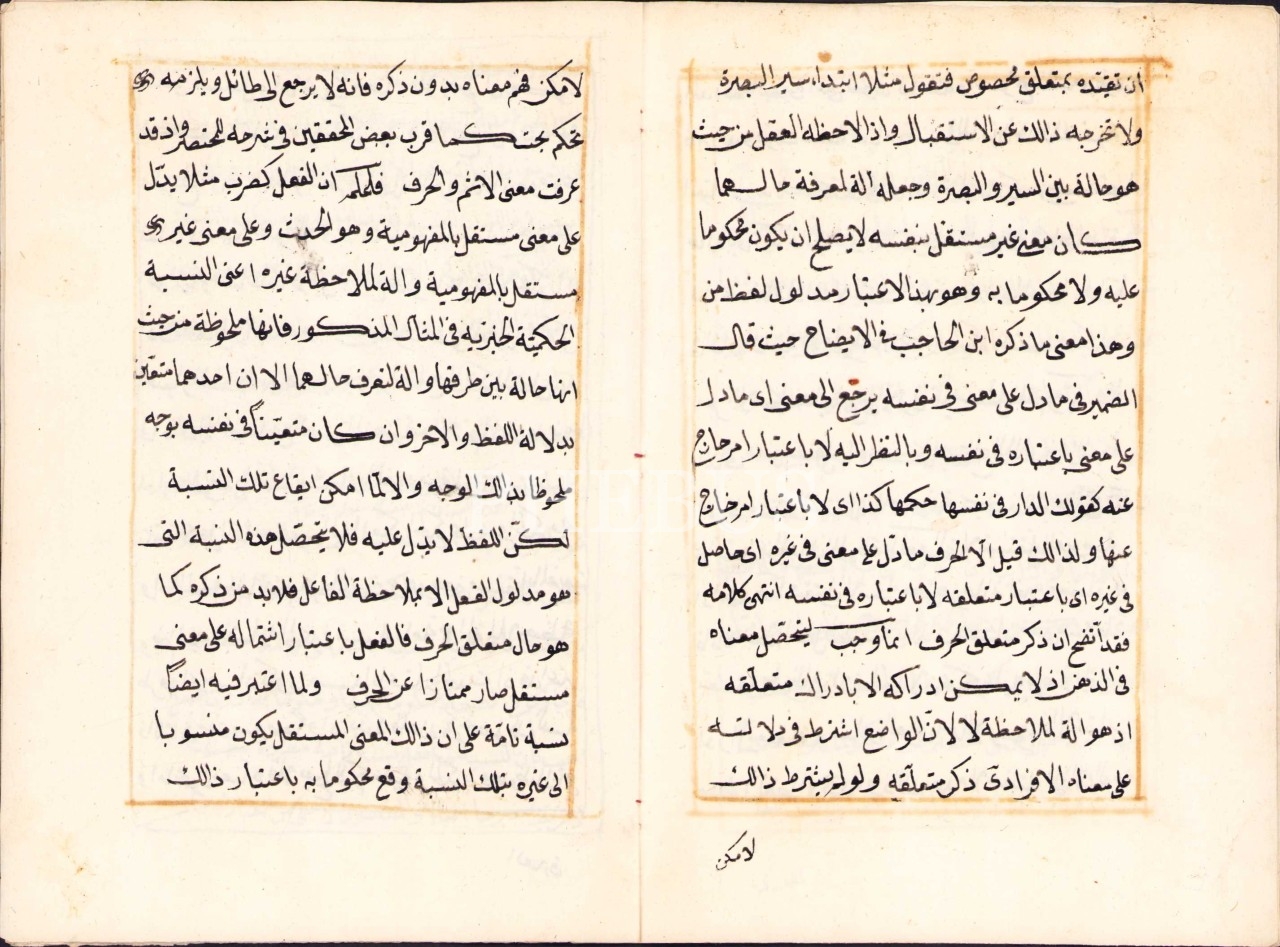 ان تقيده بمتعلق مخصوص فتقول مثلا ابتداء سير البصرة
ولا تخرجه ذالك عن الاستقبال واذا لاحظه العقل من حيث
هو حالة بين السير والبصرة وجعله آلة لمعرفة حالهما
كان معنى غير مستقل بنفسه لا يصلح ان يكون محكوما
عليه ولا محكوما به وهو بهذا الاعتبار مدلول لفظ من
وهذا معنى ما ذكره ابن الحاجب في الايضاح حيث قال
الضمير في ما دل على معنى في نفسه يرجع الى معنى اى ما دل
على معنى باعتباره في نفسه وبالنظر اليه لا باعتبار امر خارج
عنه كقولك الدار في نفسها حكمها كذا اى لا باعتبار امر خارج
عنها ولذالك قيل الحرف ما دل على معنى في غيره اى حاصل
في غيره اى باعتبار متعلقه لا باعتباره في نفسه انتهى كلامه
فقد اتضح ان ذكر متعلق الحرف انما وجب ليتحصل معناه
في الذهن اذ لا يمكن ادراكه الا بادراك متعلقه
اذ هو الة لملاحظة لا لان الواضع اشترط في دلالته
على معناه الافرادى ذكر متعلقه ولو لم يشترط ذالك
لامكن
لامكن فهم معناه بدون ذكره فانه لا يرجع الى طائل ويلزمه
تحكم بحت كما قرب بعض المحققين في شرحه للمختصر واذ قد
عرفت معنى الاسم والحرف ان الفعل كضرب مثلا يدل
على معنى مستقل بالمفهومية وهو الحدث وعلى معنى غير
مستقل بالمفهومية والة لملاحظة غيره اعنى النسبة
الحكمية الخبريه في المثال المذكور فانها ملحوظة من حيث
انها حالة بين طرفها والة لتعرف حالهما الا ان احدهما متعين
بدلالة اللفظ والاخر وان كان متعيناً في نفسه بوجه
ملحوظا بذالك الوجه والا لما امكن ايقاع تلك النسبة
لكن اللفظ لا يدل عليه فلا يتحصل هذه النسبة التى
هو مدلول الفعل الا بملاحظة الفاعل فلا بد من ذكره كما
هو حال متعلق الحرف فالفعل باعتبار اشتماله على معنى
مستقل صار ممتازا عن الحرف ولما اعتبر فيه ايضاً
نسبة تامة على ان ذالك المعنى المستقل يكون منسوبا
الى غيره بتلك النسبة وقع محكوما به باعتبار ذالك